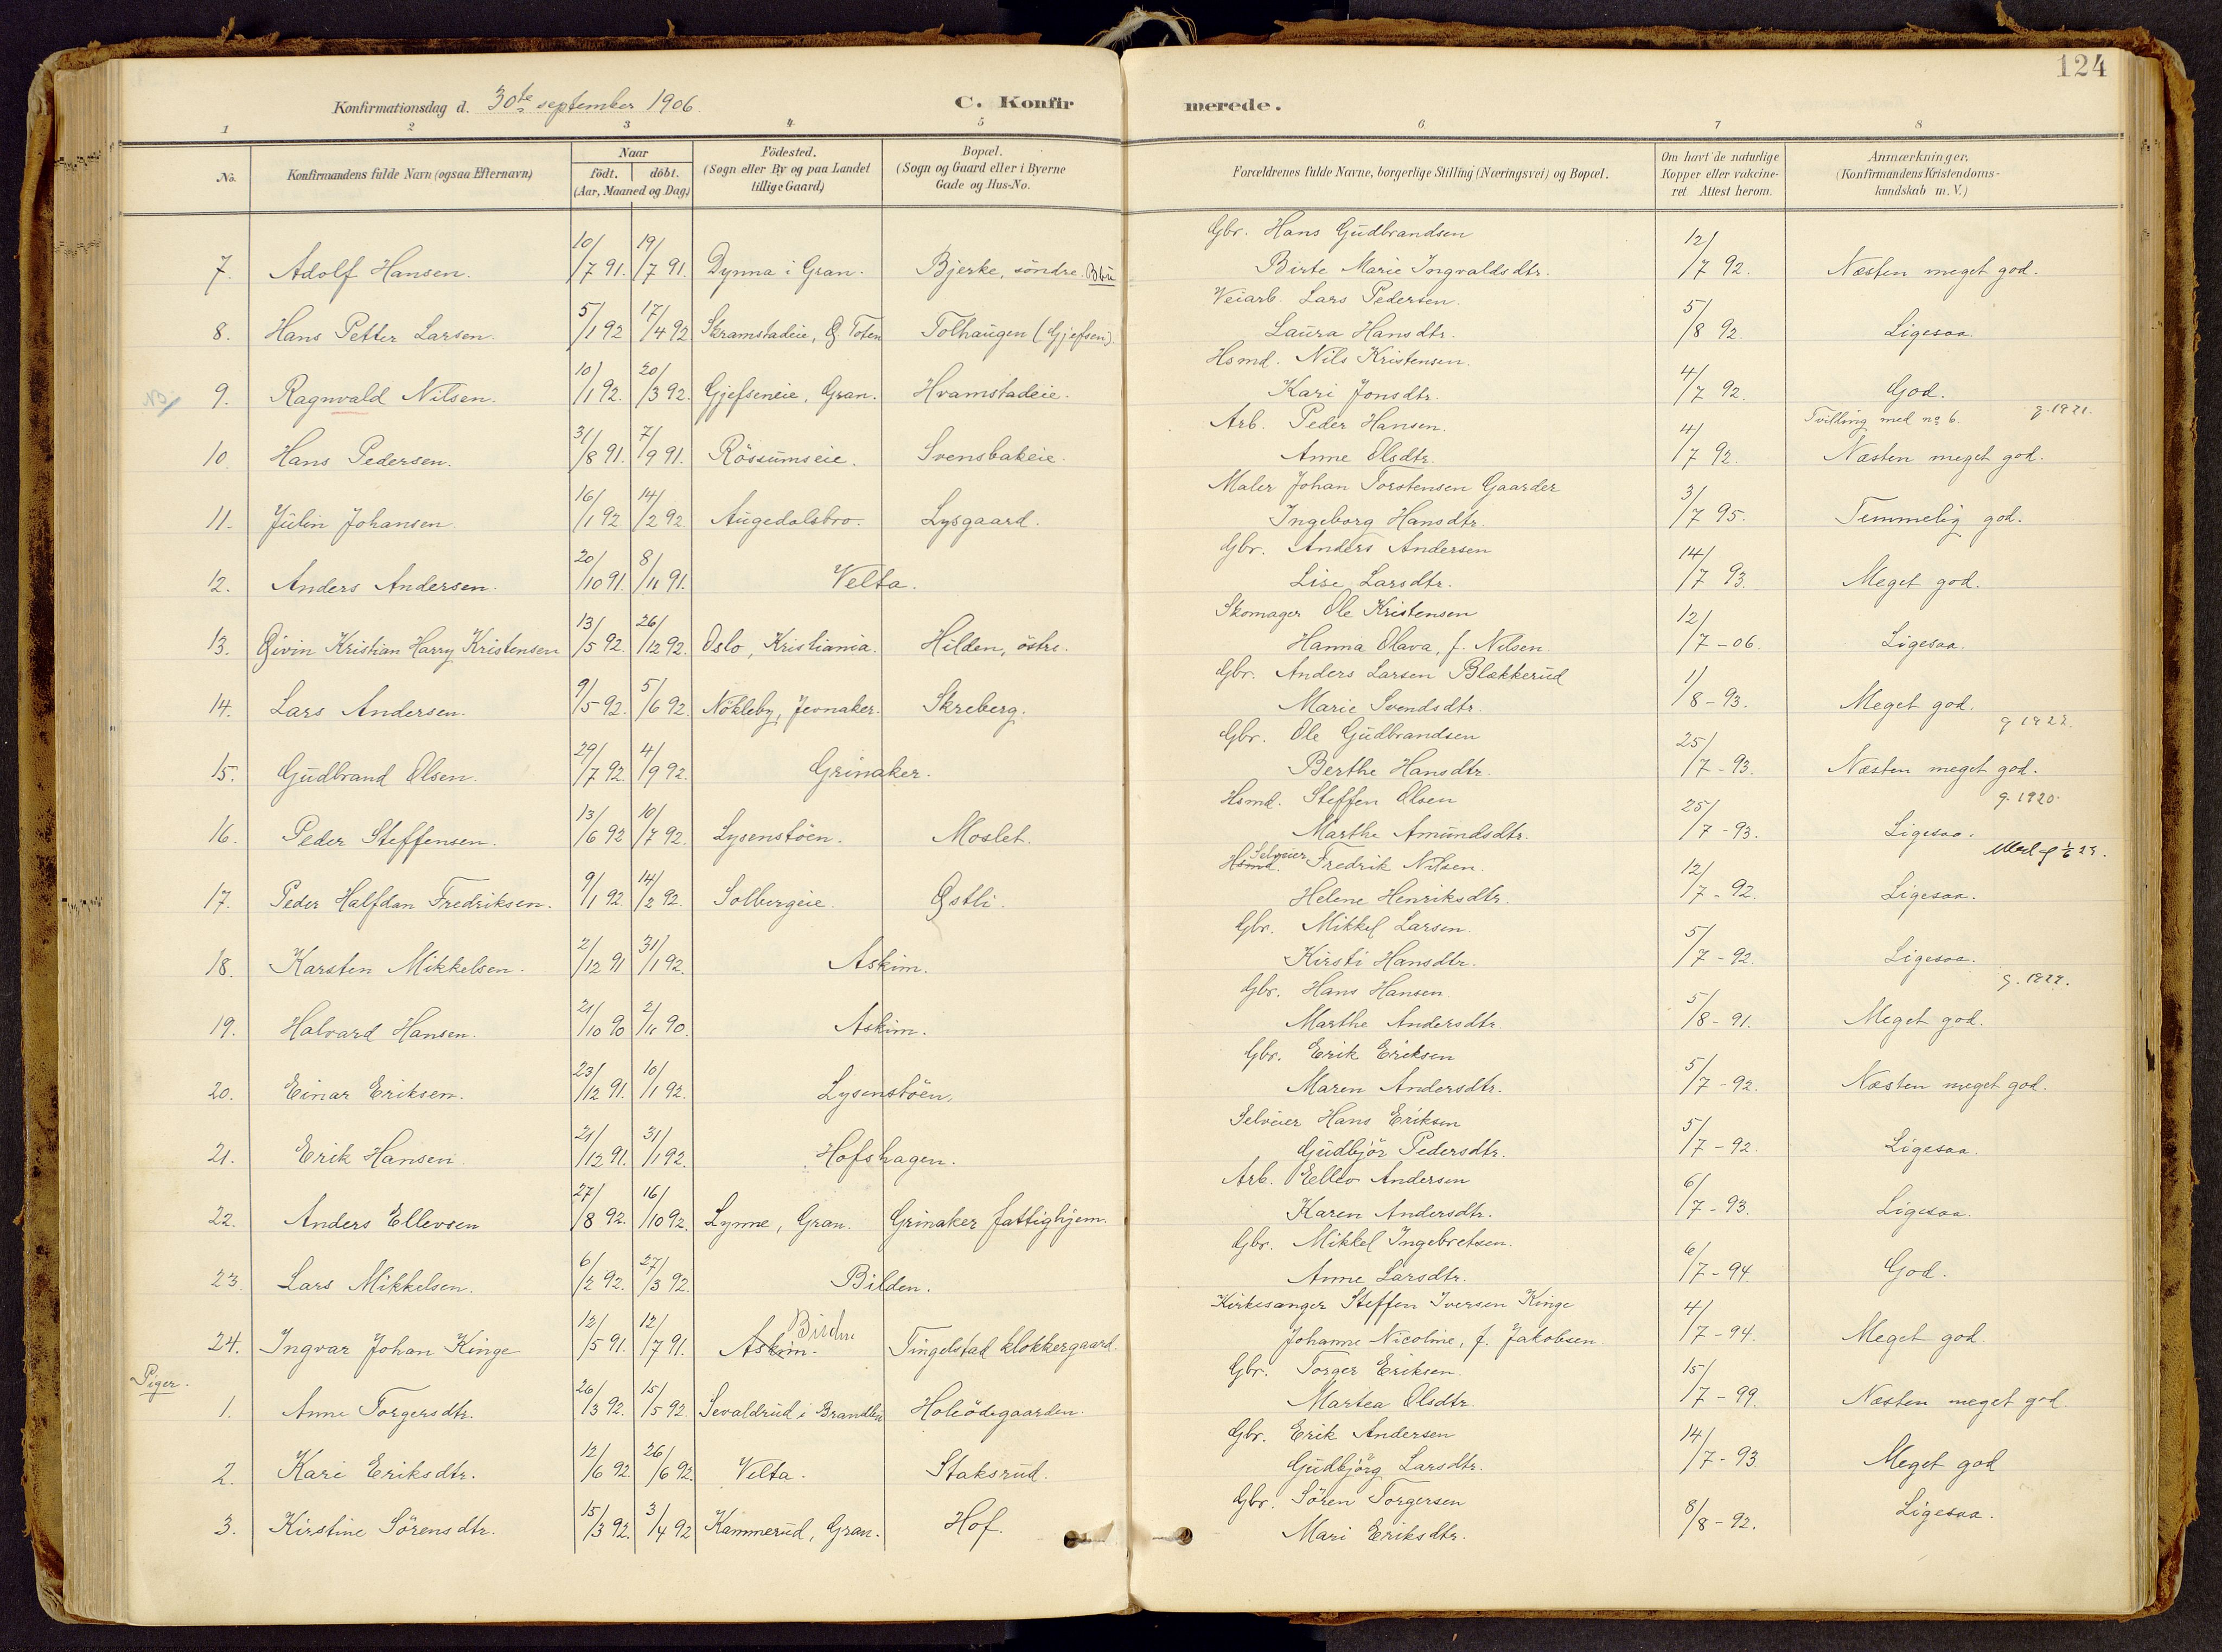 124
Konfirmationsdag d. 30te september 1906.
C. Konfirmerede.
1 2 3 4 5 6 7 8
No. Konfirmandens fulde Navn (ogsaa Efternavn) Naar födt. döbt. (Aar, Maaned og Dag) Födested. (Sogn eller By og paa Landet tillige Gaard) Bopæl. (Sogn og Gaard eller i Byerne Gade og Hus-No. Forældrenes fulde Navne, borgerlige Stilling (Næringsvei) og Bopæl. Om havt de naturlige Kopper eller vakcineret. Attest herom. Anmærkninger. (Konfirmandens Kristendomskundskab m. V.)
Gbr. Hans Gudbrandsen
7. Adolf Hansen. 10/7 91. 19/7 91. Dynna i Gran. Bjerke, söndre. Birte Marie Ingvaldsdtr. 12/7 92. Næsten meget god.
Veiarb. Lars Pedersen.
8. Hans Petter Larsen. 5/1 92 17/4 92 Skramstadeie, Ø Toten Tolhaugen (Gjefsen). Laura Hansdtr. 5/8 92. Ligesaa.
Hsmd. Nils Kristensen.
NB/ 9. Ragnvald Nilsen. 10/1 92. 20/3 92. Gjefseneie, Gran. Hvamstadeie. Kari Jonsdtr. 4/7 92. God.
Arb. Peder Hansen. Tvilling med no 6. g. 1921.
10. Hans Pedersen. 31/8 91. 7/9 91. Rössumseie. Svensbakeie. Anne Olsdtr. 4/7 92. Næsten meget god.
Maler Johan Torstensen Gaarder
11. Julin Johansen. 16/1 92 14/2 92. Augedalsbro. Lysgaard. Ingeborg Hansdtr. 3/7 95. Temmelig god.
Gbr. Anders Andersen
12. Anders Andersen. 20/10 91. 8/11 91. Velta. Lise Larsdtr. 14/7 93. Meget god.
Skomager Ole Kristensen
13. Øivin Kristian Harry Kristensen 13/5 92. 26/12 92. Oslo, Kristiania. Hilden, östre. Hanna Olava, f. Nilsen. 12/7 - 06. Ligesaa.
Gbr. Anders Larsen Blækkerud
14. Lars Andersen. 9/5 92. 5/6 92. Nökleby, Jevnaker. Skreberg. Marie Svendsdtr. 1/8 - 93. Meget god.
Gbr. Ole Gudbrandsen g 1922.
15. Gudbrand Olsen. 29/7 92. 4/9 92. Grinaker. Berthe Hansdtr. 25/7 - 93. Næsten meget god.
Hsmd. Steffen Olsen g. 1920.
16. Peder Steffensen. 13/6 92 10/7 92. Lysenstöen. Moslet. Marthe Amundsdtr. 25/7 - 93. Ligesaa.
Hsmd. Selveier Fredrik Nilsen.
17. Peder Halfdan Fredriksen. 9/1 92. 14/2 92. Solbergeie. Østli. Helene Henriksdtr. 12/7 - 92. Ligesaa.
Gbr. Mikkel Larsen.
18. Karsten Mikkelsen. 2/12 91 31/1 92. Askim. Kirsti Hansdtr. 5/7 - 92. Ligesaa.
Gbr. Hans Hansen. g. 1922.
19. Halvard Hansen. 21/10 90 2/11 90. Askim. Marthe Andersdtr. 5/8 - 91. Meget god.
Gbr. Erik Eriksen
20. Einar Eriksen. 23/12 91. 10/1 92. Lysenstöen. Maren Andersdtr. 5/7 - 92. Næsten meget god.
Selveier Hans Eriksen
21. Erik Hansen 21/12 91. 31/1 92. Hofshagen. Gudbjör Pedersdtr. 5/7 - 92. Ligesaa.
Arb. Ellev Andersen
22. Anders Ellevsen 27/8 92. 16/10 92. Lynne, Gran. Grinaker fattighjem. Karen Andersdtr. 6/7 - 93. Ligesaa.
Gbr. Mikkel Ingebretsen.
23. Lars Mikkelsen. 6/2 92. 27/3 92. Bilden. Anne Larsdtr. 6/7 - 94. God.
Kirkesanger Steffen Iversen Kinge
24. Ingvar Johan Kinge 12/5 91. 12/7 91. Askim. Tingelstad klokkergaard. Johanne Nicoline, f. Jakobsen. 4/7 - 94. Meget god.
Piger.
Gbr. Torger Eriksen.
1. Anne Torgersdtr. 26/3 92. 15/5 92. Sevaldrud i Brandbu Holeödegaarden. Martea Olsdtr. 15/7 - 99. Næsten meget god.
Gbr. Erik Andersen
2. Kari Eriksdtr. 12/6 92. 26/6 92. Velta. Staksrud. Gudbjörg Larsdtr. 14/7 - 93 Meget god
Gbr. Sören Torgersen
3. Kirstine Sörensdtr. 15/3 92. 3/4 92 Kammerud, Gran. Hof. Mari Eriksdtr. 8/8 - 92. Ligesaa.